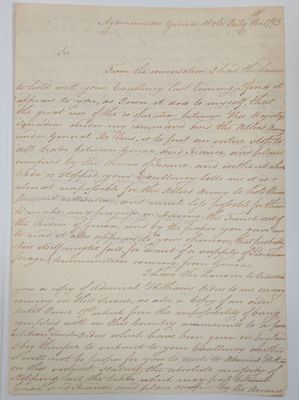 Agamemnon Genoa Mole July 15th 1795
Sir
From the conversation I had the honor
to hold with your Excellency last Evening, I find it
appears to you, as I own it does to myself, that
the great use of the co-operation between His Majesty's
Squadron under my command and the Allied Army
under General De Vins, is to put an entire stop to
all trade between Genoa and France, and places
occupied by the Armies of France, and until
trade is stopped, your Excellency tells me it is
almost impossible for the Allied Army to hold their
present situation, and much less possible for them
to make any progress in driving the French out of
the Riviera of Genoa and by the papers you gave me
to read it also appears to your opinion that probably
Nice itself might fall for want of a supply of Provisions
forage & ammunition coming from Genoa
I have the honour to
you a copy of Admiral Hothams Orders to me on my
coming on this Service, as also a Copy of an
Order June 17th which from the impossibility of being
complied with in this Country amounts to a
which have been given in
I beg therefore to submit to your Excellency whether
it will not be proper for you to write to Admiral Hotham
on this subject stating the absolute necessity of
stopping all the trade which may pass between
Genoa and France, and places occupied by the Armies